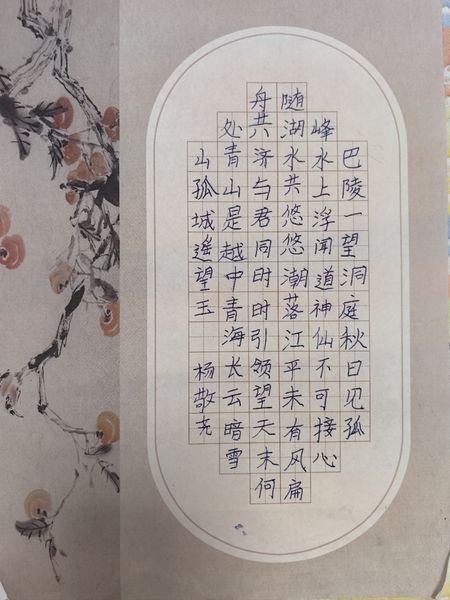 巴陵一望洞庭秋日见孤
峰水上浮闻道神仙不可接心
随湖水共悠悠潮落江平未有风扁
舟共济与君同时时引领望天末何
处青山是越中青海长云暗雪
山孤城遥望玉 杨敬尧